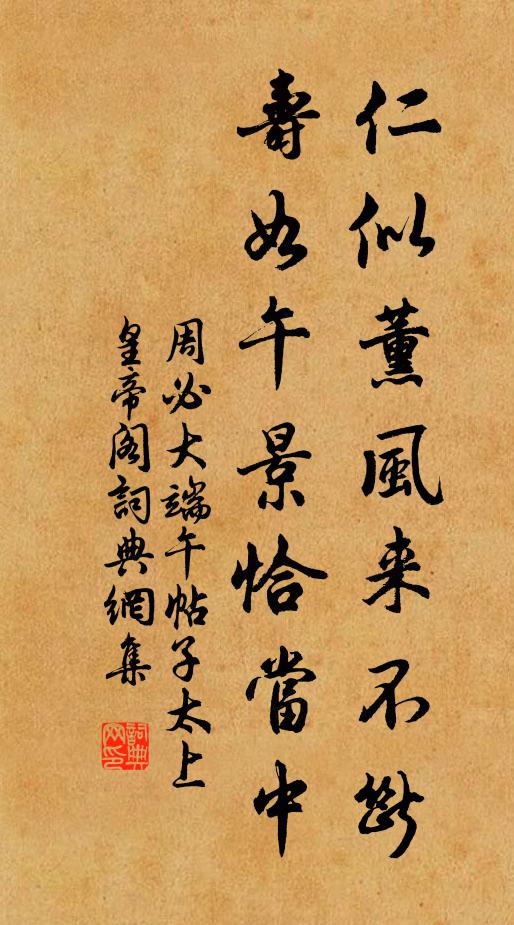 仁似薰風来不斷
壽如午景恰當中
周必大端午帖子太上
皇帝阁詞典網集
詞典網印